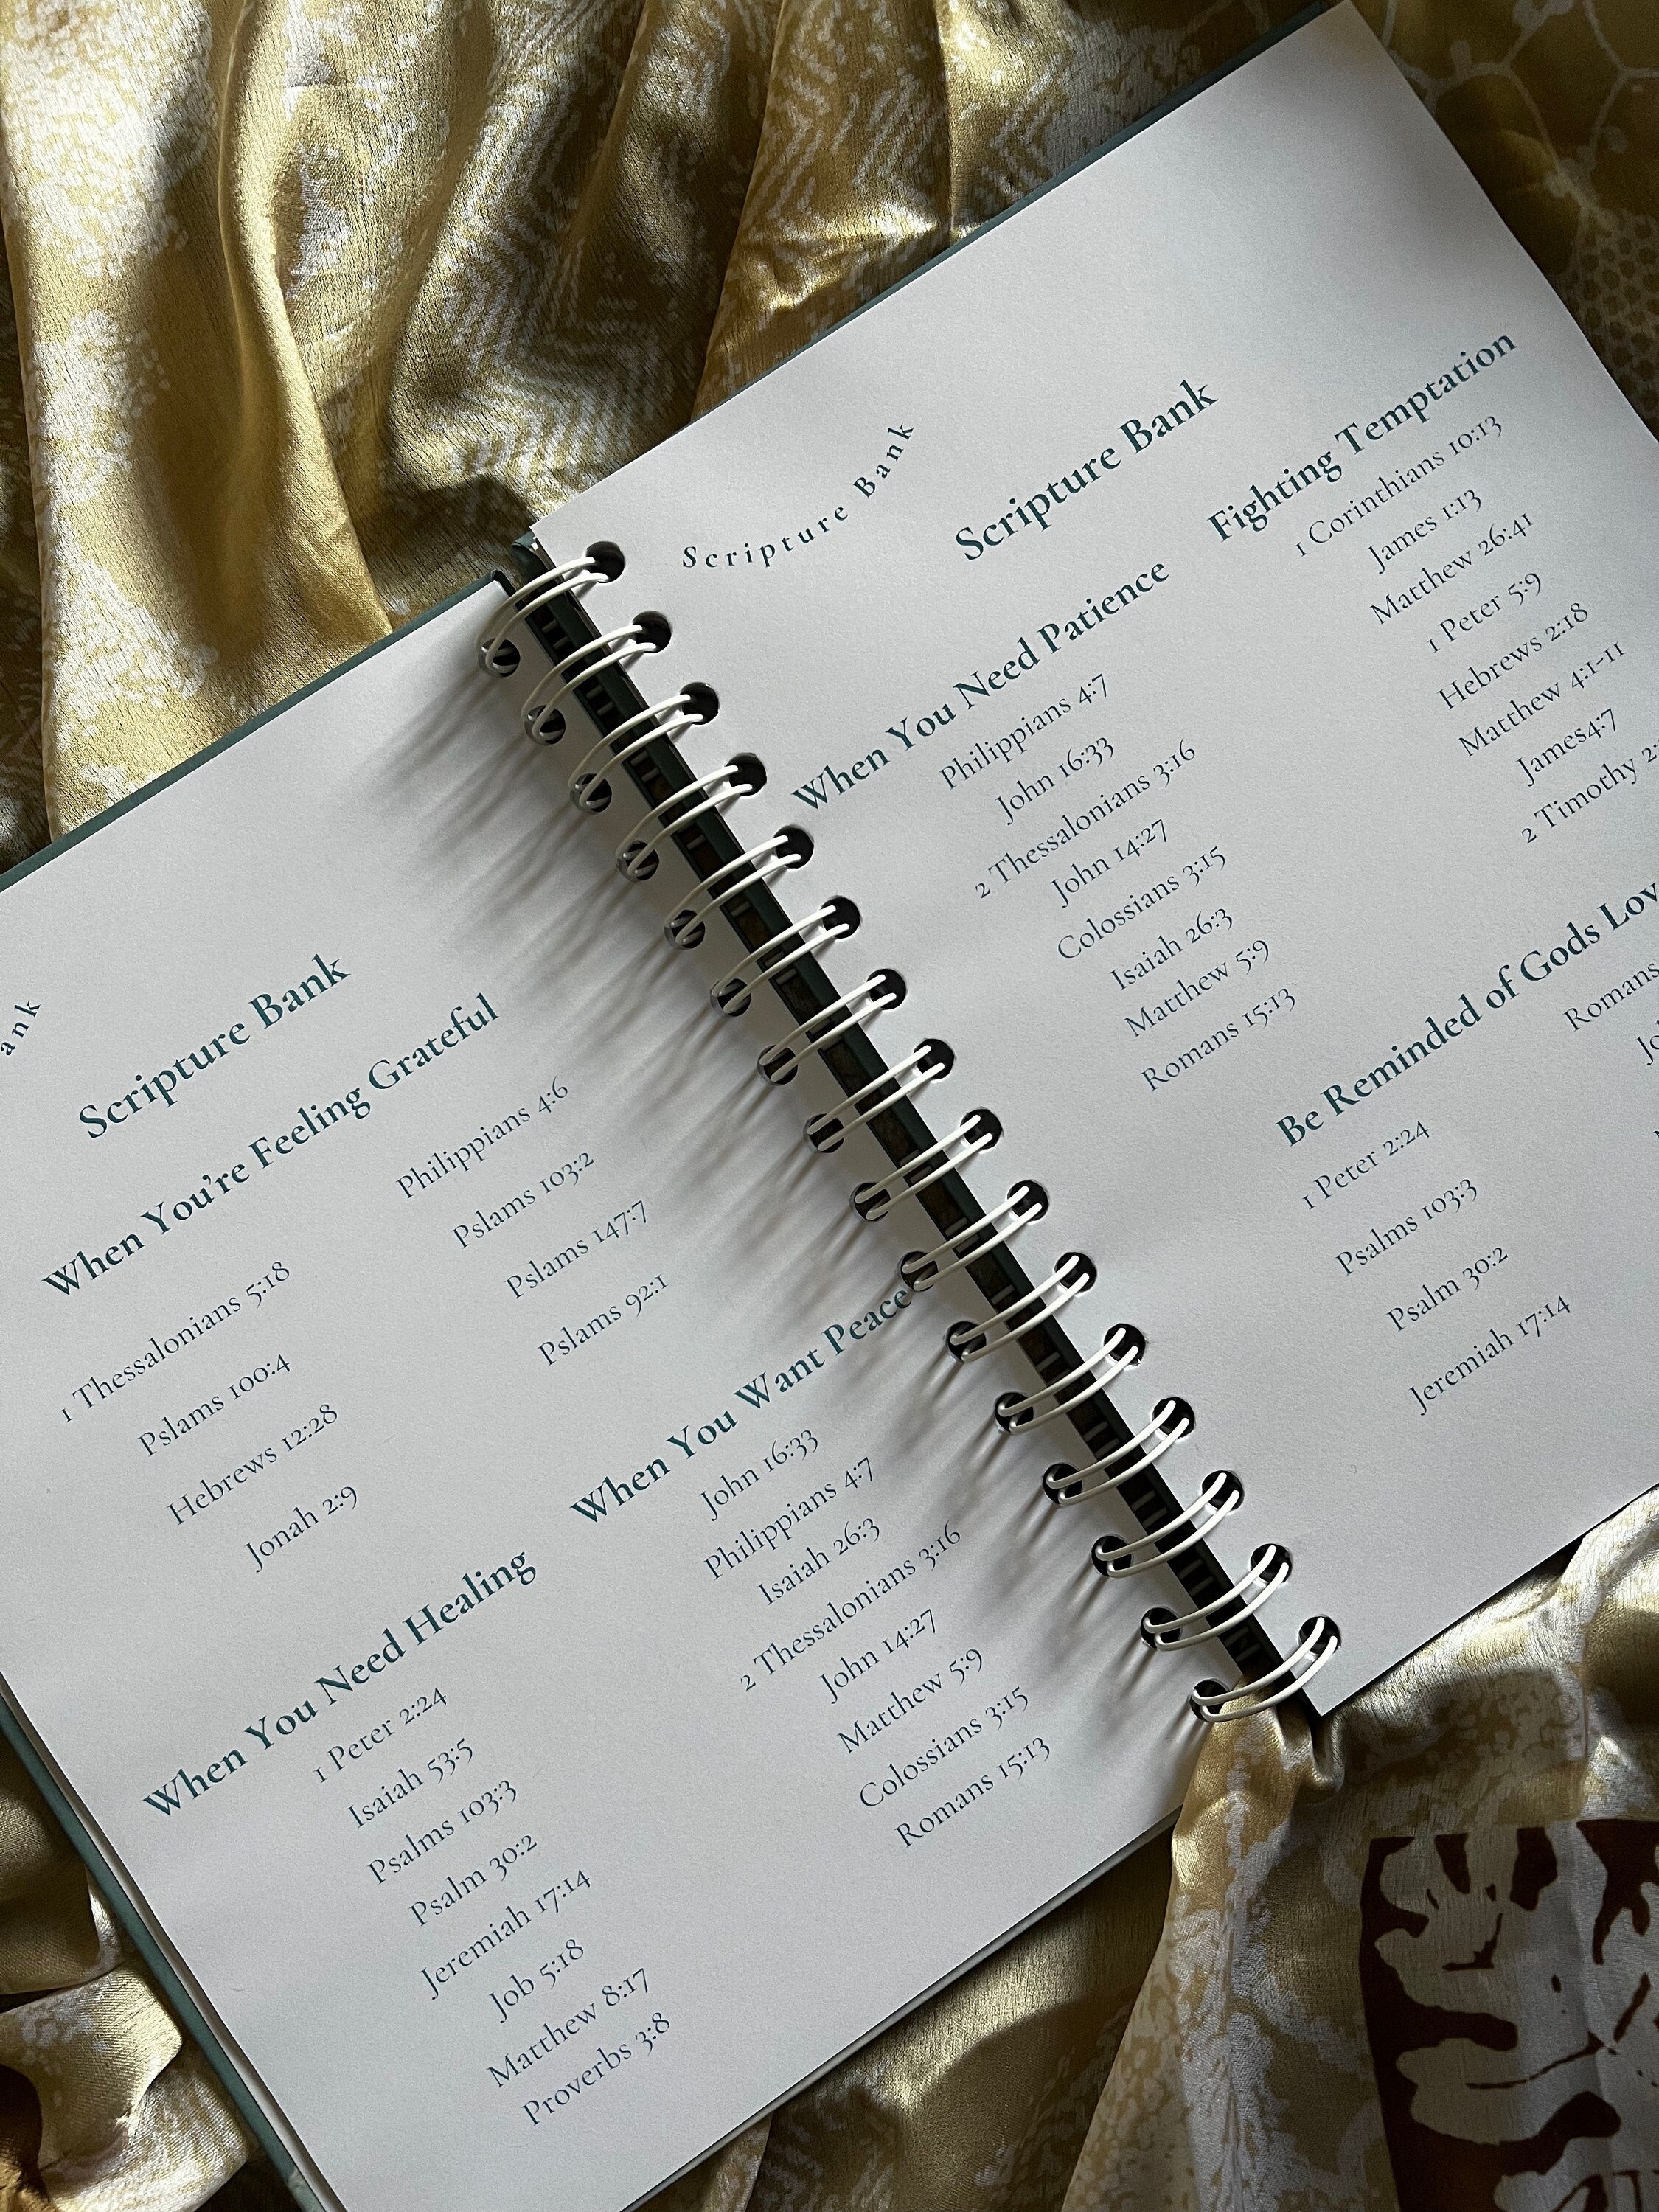 ank
Scripture Bank
When You're Feeling Grateful
1 Thessalonians 5:18
Pslams 100:4
Hebrews 12:28
Jonah 2:9
Philippians 4:6
Pslams 103:2
Pslams 147:7
Pslams 92:1
When You Need Healing
1 Peter 2:24
Isaiah 53:5
Psalms 103:3
Psalm 30:2
Jeremiah 17:14
Job 5:18
Matthew 8:17
Proverbs 3:8
When You Want Peace
John 16:33
Philippians 4:7
Isaiah 26:3
2 Thessalonians 3:16
John 14:27
Matthew 5:9
Colossians 3:15
Romans 15:13
Scripture Bank
Scripture Bank
When You Need Patience
Philippians 4:7
John 16:33
2 Thessalonians 3:16
John 14:27
Colossians 3:15
Isaiah 26:3
Matthew 5:9
Romans 15:13
Fighting Temptation
1 Corinthians 10:13
James 1:13
Matthew 26:41
1 Peter 5:9
Hebrews 2:18
Matthew 4:1-11
James4:7
2 Timothy 2:
Be Reminded of Gods Lov
1 Peter 2:24
Psalms 103:3
Psalm 30:2
Jeremiah 17:14
Romans
Jo